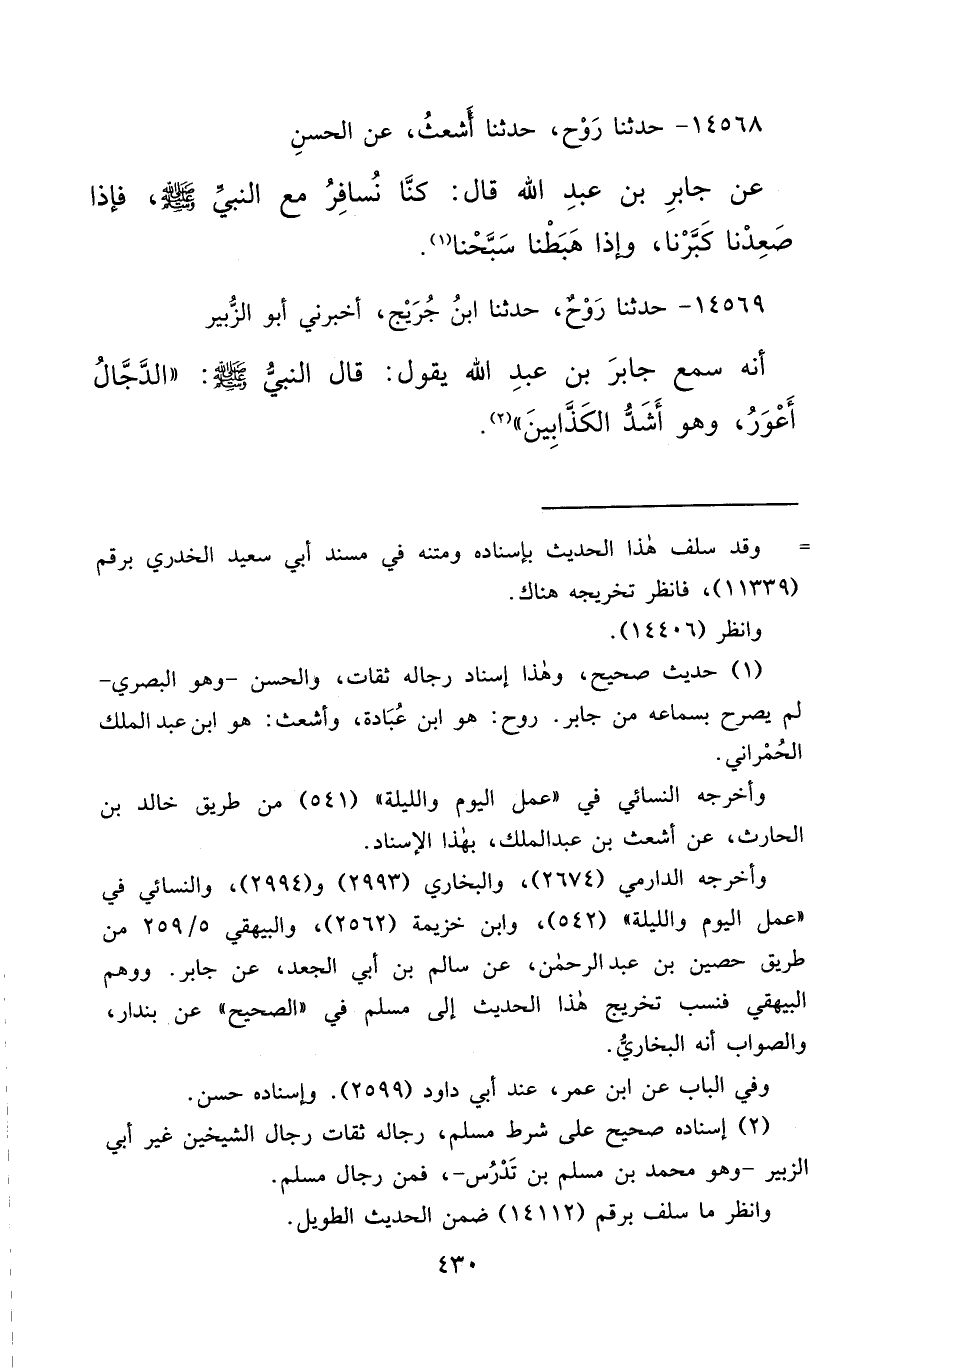 ١٤٥٦٨- حدثنا رَوْح، حدثنا أَشعثُ، عن الحسنِ
عن جابرِ بن عبدِ الله قال: كنَّا نُسافِرُ مع النبيِّ ﷺ، فإذا
صَعِدْنا كَبَّرْنا، وإذا هَبَطْنا سَبَّحْنا(١).
١٤٥٦٩- حدثنا رَوْحٌ، حدثنا ابنُ جُرَيْج، أخبرني أبو الزُّبير
أنه سمع جابرَ بن عبدِ الله يقول: قال النبيُّ ﷺ: «الدَّجَّالُ
أَعْوَرُ، وهو أَشَدُّ الكَذَّابِينَ»(٢).
= وقد سلف هٰذا الحديث بإسناده ومتنه في مسند أبي سعيد الخدري برقم
(١١٣٣٩)، فانظر تخريجه هناك.
وانظر (١٤٤٠٦).
(١) حديث صحيح، وهٰذا إسناد رجاله ثقات، والحسن -وهو البصري-
لم يصرح بسماعه من جابر. روح: هو ابن عُبَادة، وأشعث: هو ابن عبد الملك
الحُمْراني.
وأخرجه النسائي في «عمل اليوم والليلة» (٥٤١) من طريق خالد بن
الحارث، عن أشعث بن عبدالملك، بهٰذا الإسناد.
وأخرجه الدارمي (٢٦٧٤)، والبخاري (٢٩٩٣) و(٢٩٩٤)، والنسائي في
«عمل اليوم والليلة» (٥٤٢)، وابن خزيمة (٢٥٦٢)، والبيهقي ٢٥٩/٥ من
طريق حصين بن عبد الرحمٰن، عن سالم بن أبي الجعد، عن جابر. ووهم
البيهقي فنسب تخريج هٰذا الحديث إلى مسلم في «الصحيح» عن بندار،
والصواب أنه البخاريُّ.
وفي الباب عن ابن عمر، عند أبي داود (٢٥٩٩). وإسناده حسن.
(٢) إسناده صحيح على شرط مسلم، رجاله ثقات رجال الشيخين غير أبي
الزبير -وهو محمد بن مسلم بن تَدْرُس-، فمن رجال مسلم.
وانظر ما سلف برقم (١٤١١٢) ضمن الحديث الطويل.
٤٣٠